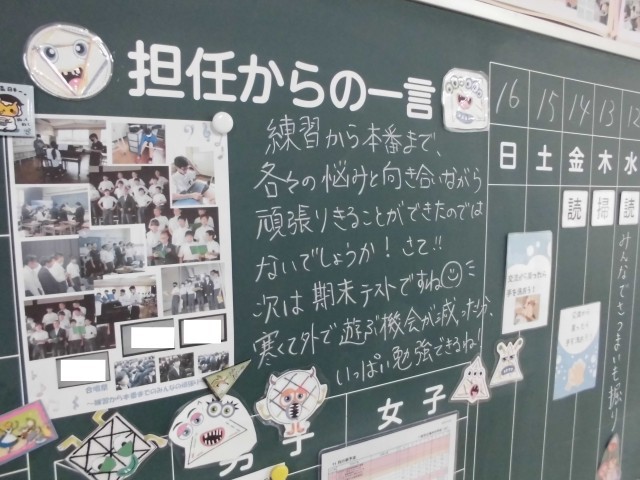 担任からの一言
練習から本番まで、
各々の悩みと向き合いながら
頑張りきることができたのでは
ないでしょうか！さて!!
次は期末テストですね
寒くて外で遊ぶ機会が減った分、
いっぱい勉強できるね!
16 15 14 13 12
日 土 金 木 水
読 掃 読
みんなでさつまいも掘り
合唱祭
男子
女子